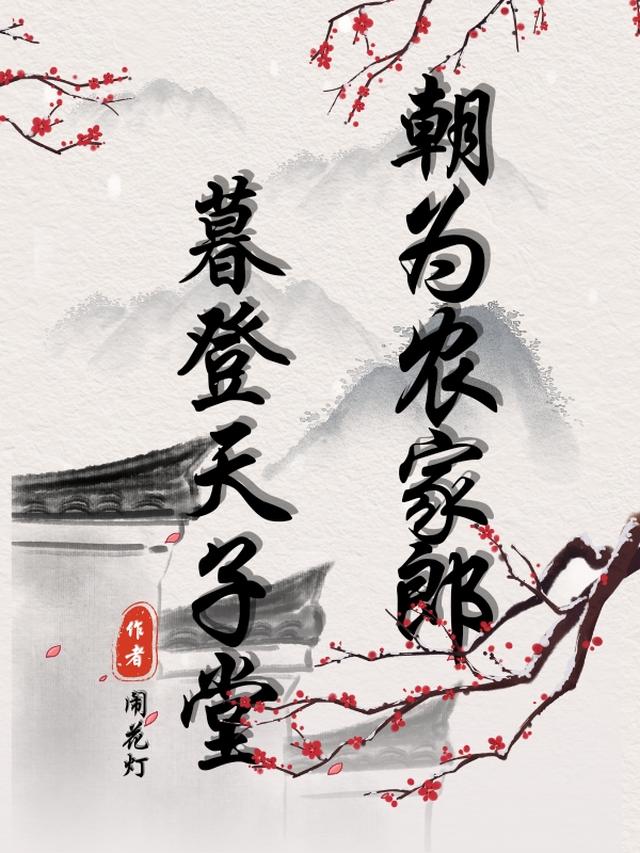 朝为农家郎
暮登天子堂
作者
闹花灯